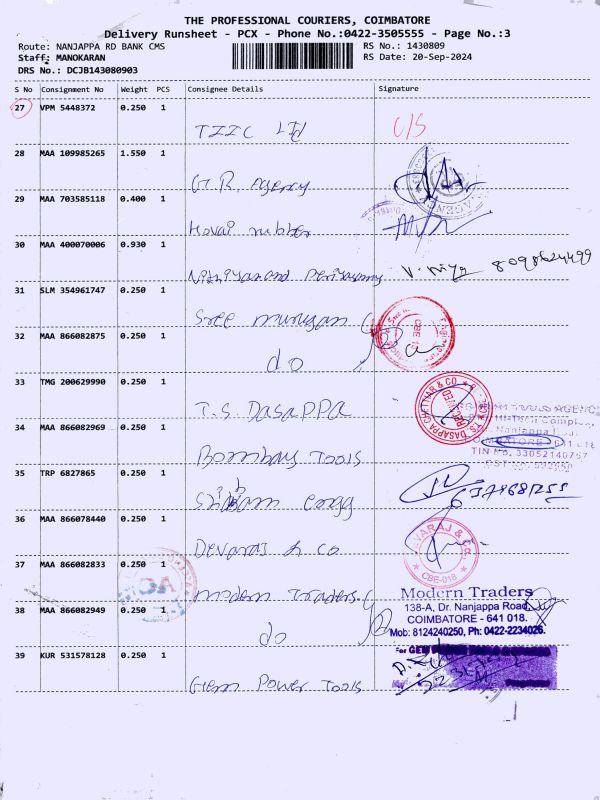 THE PROFESSIONAL COURIERS, COIMBATORE
Delivery Runsheet - PCX - Phone No.:0422-3505555 - Page No.:3
Route: NANJAPPA RD BANK CMS
RS No.: 1430809
Staff: MANOKARAN
RS Date: 20-Sep-2024
DRS No.: DCJB143080903
S No Consignment No Weight PCS Consignee Details Signature
27 VPM 5448372 0.250 1
TIIC Ltd C/S
28 MAA 109985265 1.550 1
G.R. Agency
29 MAA 703585118 0.400 1
Kovai rubber
30 MAA 400070006 0.930 1
V. 8098624499
31 SLM 354961747 0.250 1
Sree murugan
32 MAA 866082875 0.250 1
do
33 TMG 200629990 0.250 1
T.S. DASAPPA
T.S. DASAPPA CHETTIAR & CO.
RECEIVED
34 MAA 866082969 0.250 1
Nanjappa
COIMBATORE
TIN No. 33052140767
Bombay Tools
35 TRP 6827865 0.250 1
engg
36 MAA 866078440 0.250 1
Devaraj & co
DEVARAJ & CO.
CBE-018
37 MAA 866082833 0.250 1
modern Traders
Modern Traders
138-A, Dr. Nanjappa Road,
38 MAA 866082949 0.250 1
COIMBATORE - 641 018.
do
Mob: 8124240250, Ph: 0422-2234026.
39 KUR 531578128 0.250 1
For GEM
Gem Power Tools